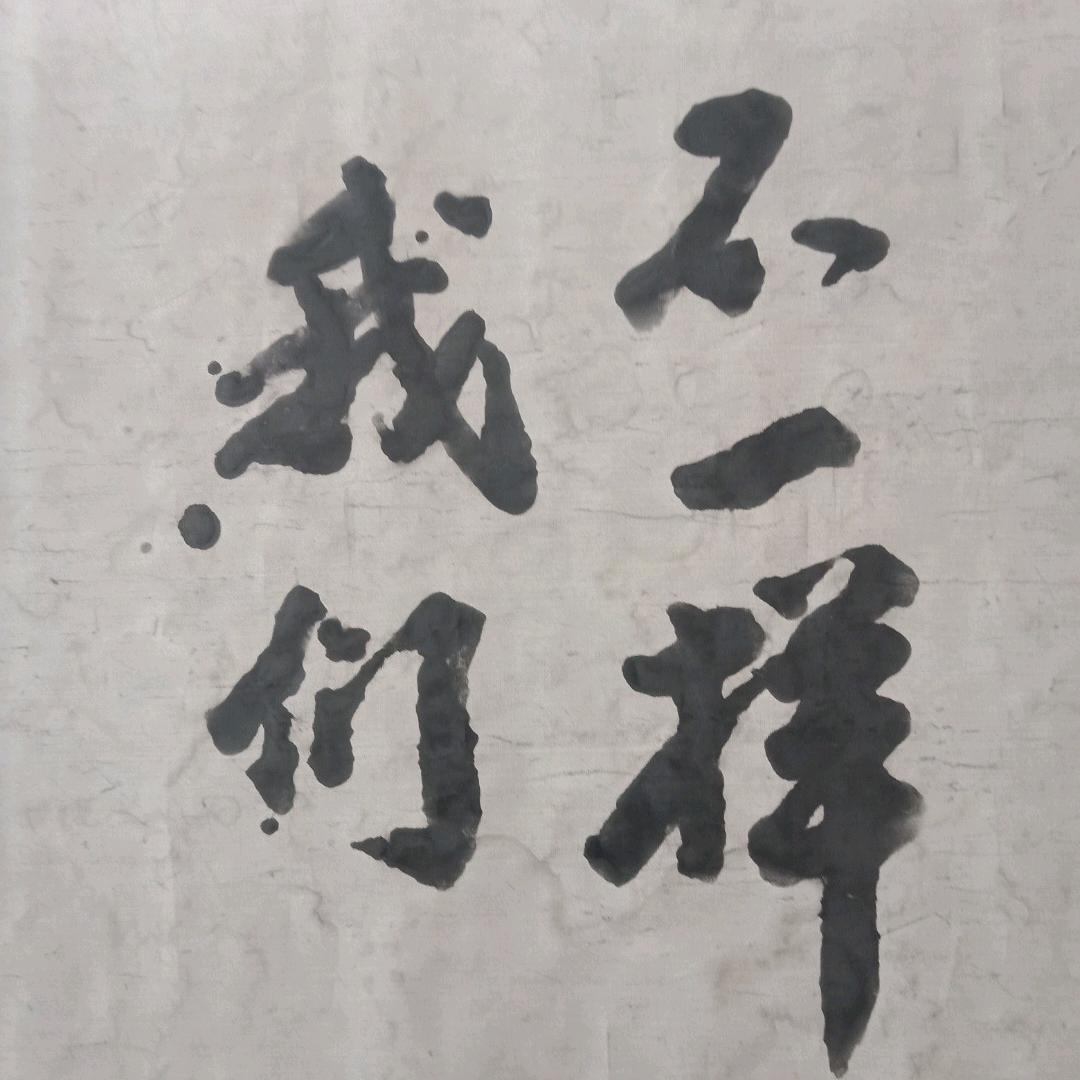 不一样
我们